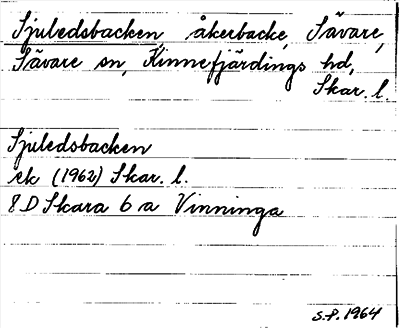 Sjuledsbacken åkerbacke, Sävare,
Sävare sn, Kinnefjärdings hd,
Skar. l.
Sjuledsbacken
ek (1962) Skar. l.
8 D Skara 6 a Vinninga
S.P. 1964